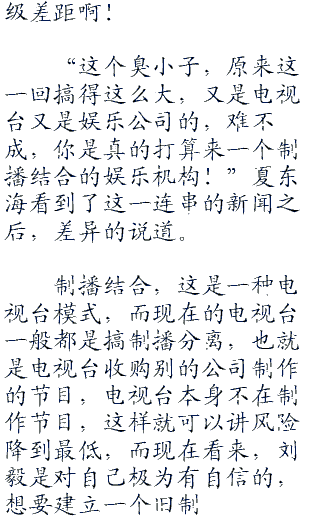 级差距啊！
“这个臭小子，原来这
一回搞得这么大，又是电视
台又是娱乐公司的，难不
成，你是真的打算来一个制
播结合的娱乐机构！”夏东
海看到了这一连串的新闻之
后，差异的说道。
制播结合，这是一种电
视台模式，而现在的电视台
一般都是搞制播分离，也就
是电视台收购别的公司制作
的节目，电视台本身不在制
作节目，这样就可以讲风险
降到最低，而现在看来，刘
毅是对自己极为有自信的，
想要建立一个旧制